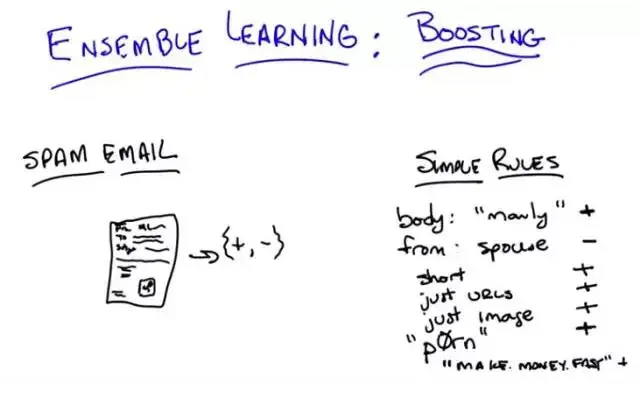 ENSEMBLE LEARNING: BOOSTING
SPAM EMAIL
{+, -}
SIMPLE RULES
body: "manly" +
from: spouse -
short +
just URLs +
just image +
"pØrn" +
"MAKE.MONEY.FAST" +